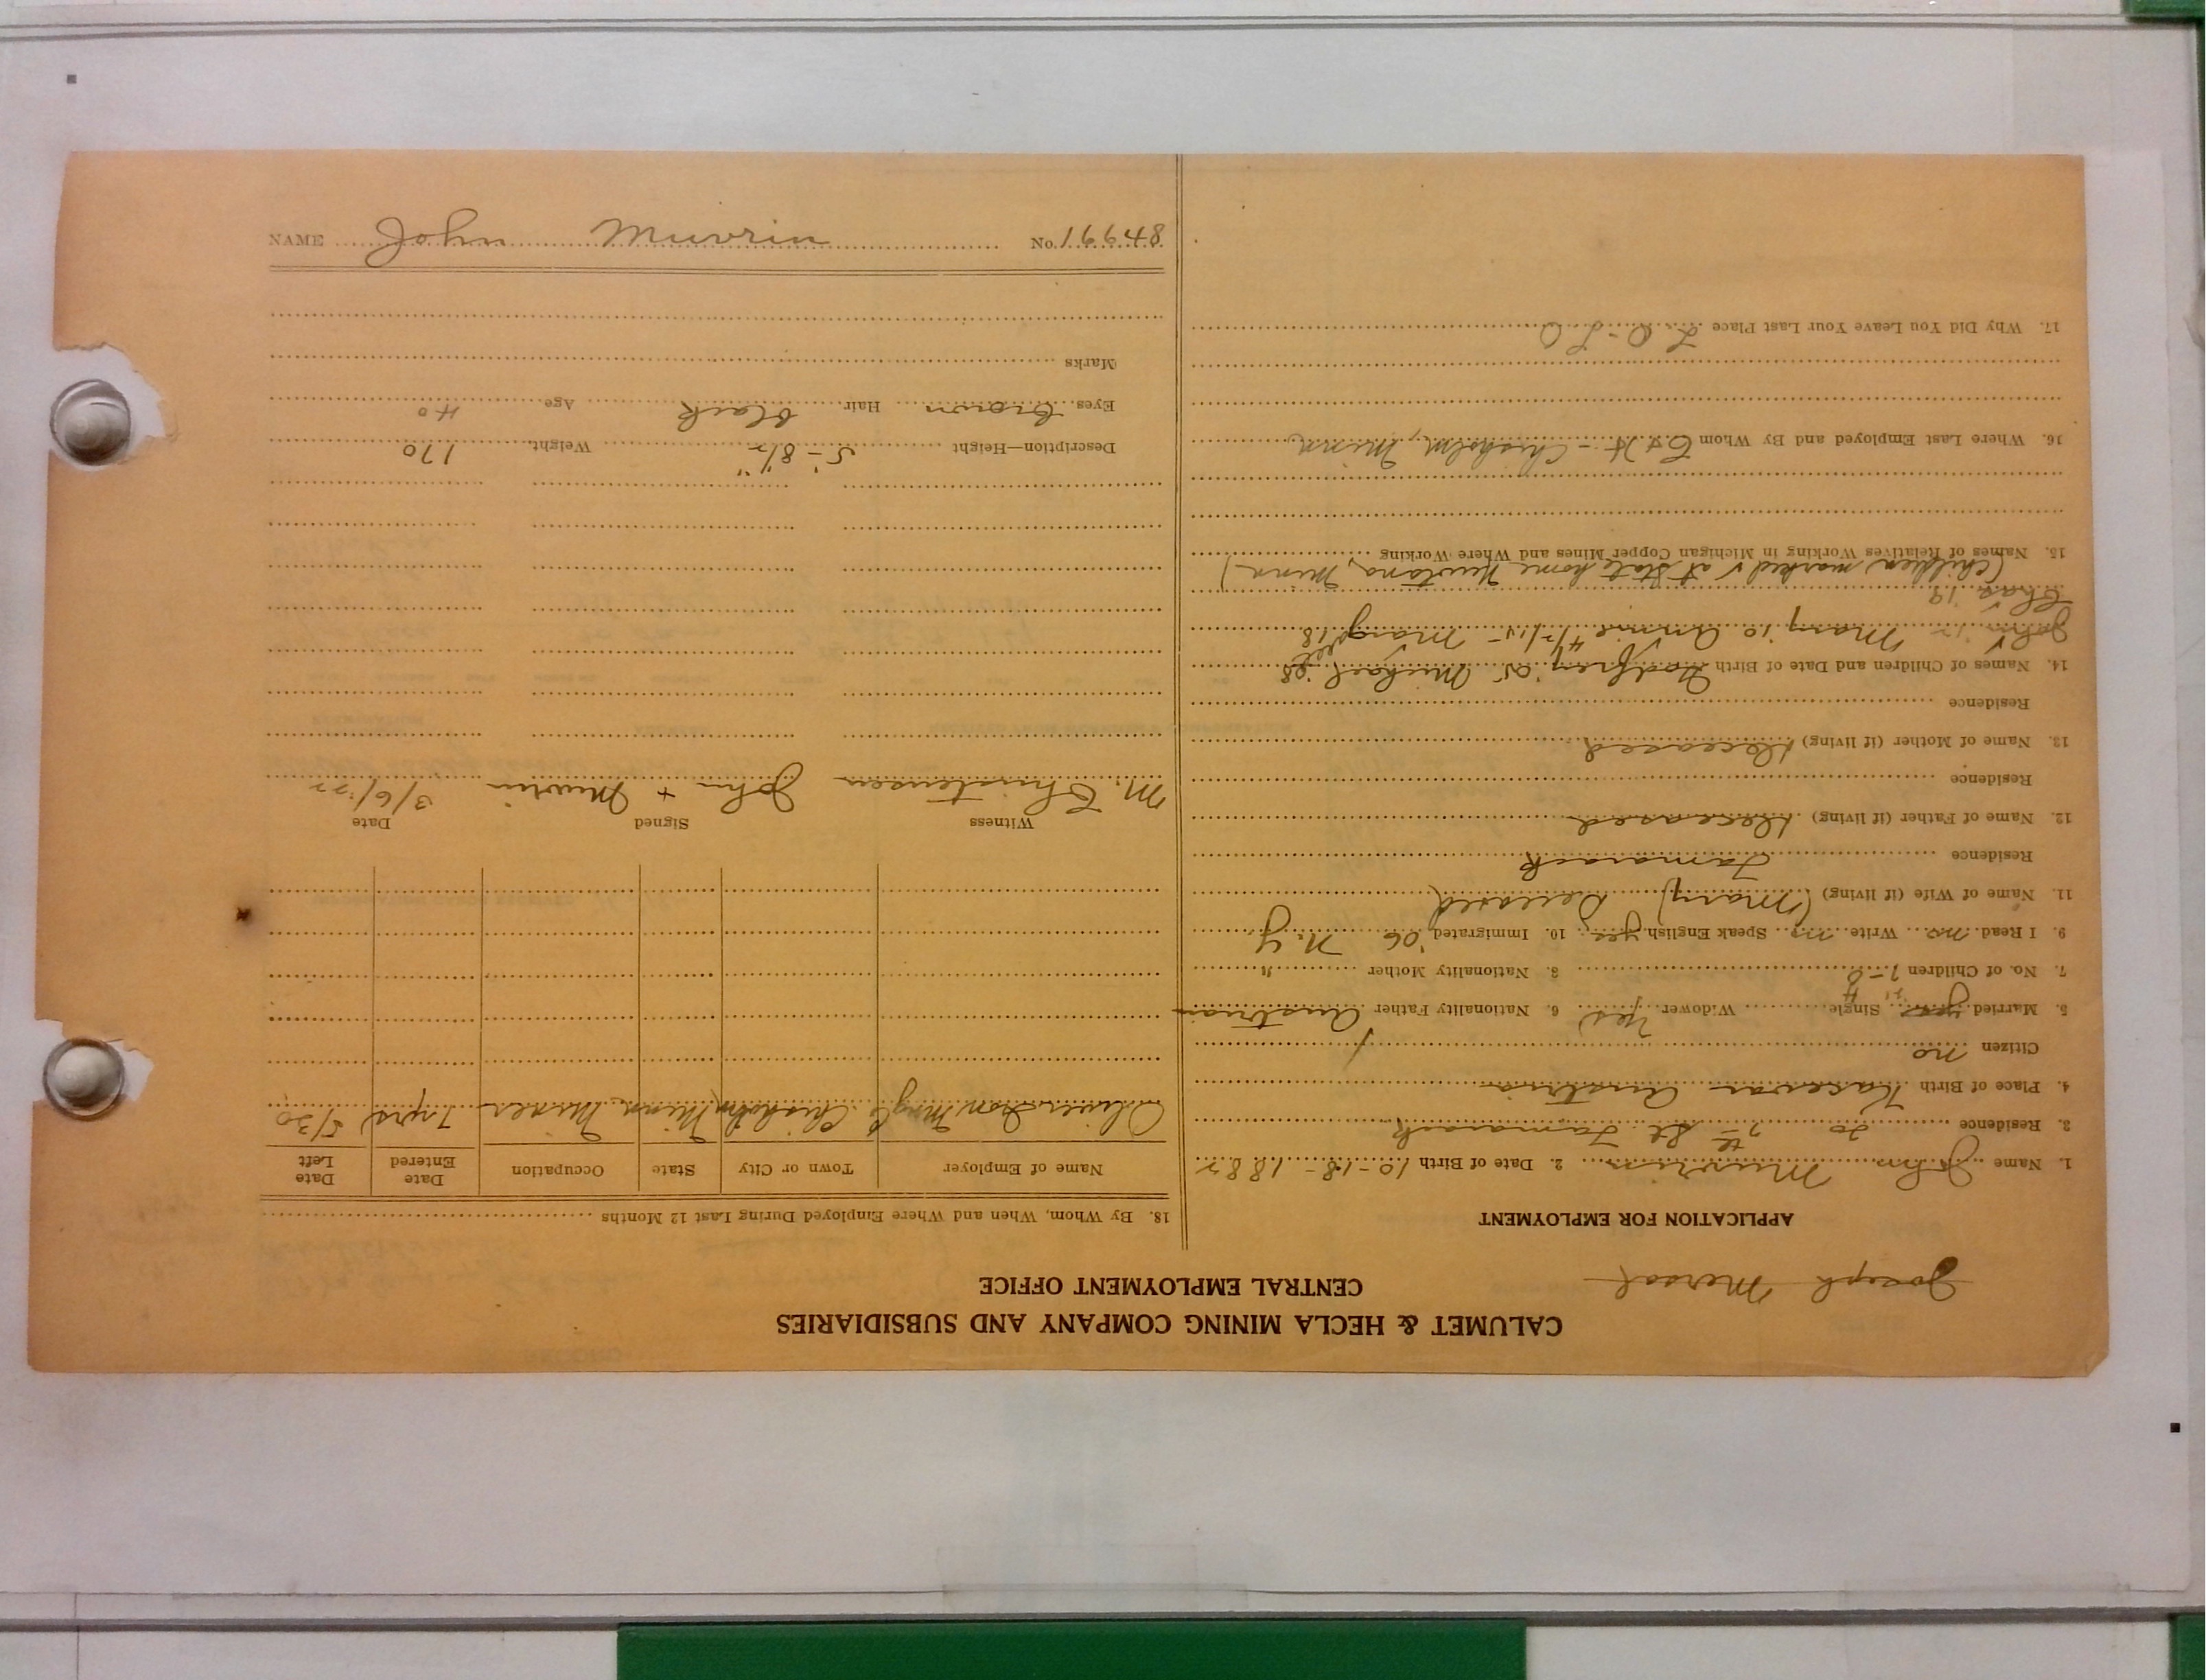 CALUMET & HECLA MINING COMPANY AND SUBSIDIARIES
CENTRAL EMPLOYMENT OFFICE
Joseph
APPLICATION FOR EMPLOYMENT
1. Name John Muvrin 2. Date of Birth 10-18-1882
3. Residence 20 7th St Tamarack
4. Place of Birth Austria
Citizen no
5. Married yes Single Widower yes 6. Nationality Father Austrian
7. No. of Children 7- 8. Nationality Mother "
9. I Read no Write no Speak English yes 10. Immigrated '06 N.Y.
11. Name of Wife (if living) (Mary) Deceased
Residence Tamarack
12. Name of Father (if living) deceased
Residence
13. Name of Mother (if living) deceased
Residence
14. Names of Children and Date of Birth Godfrey '05 Michael '08
John '12 Mary '10 Annie 4/2/15 - 18
Chas '19
(Children marked ✓ at State home Minn)
15. Names of Relatives Working in Michigan Copper Mines and Where Working
16. Where Last Employed and By Whom C & H - Chisholm, Minn
17. Why Did You Leave Your Last Place
18. By Whom, When and Where Employed During Last 12 Months
Name of Employer Town or City State Occupation Date Entered Date Left
Oliver Iron Mng Co Chisholm Minn. Miner 7 yrs 5/30
Witness Signed Date
M. Christensen John + Muvrin 3/6/22
Description—Height 5'-8 1/2" Weight 170
Eyes brown Hair black Age 40
Marks
NAME John Muvrin No. 16648